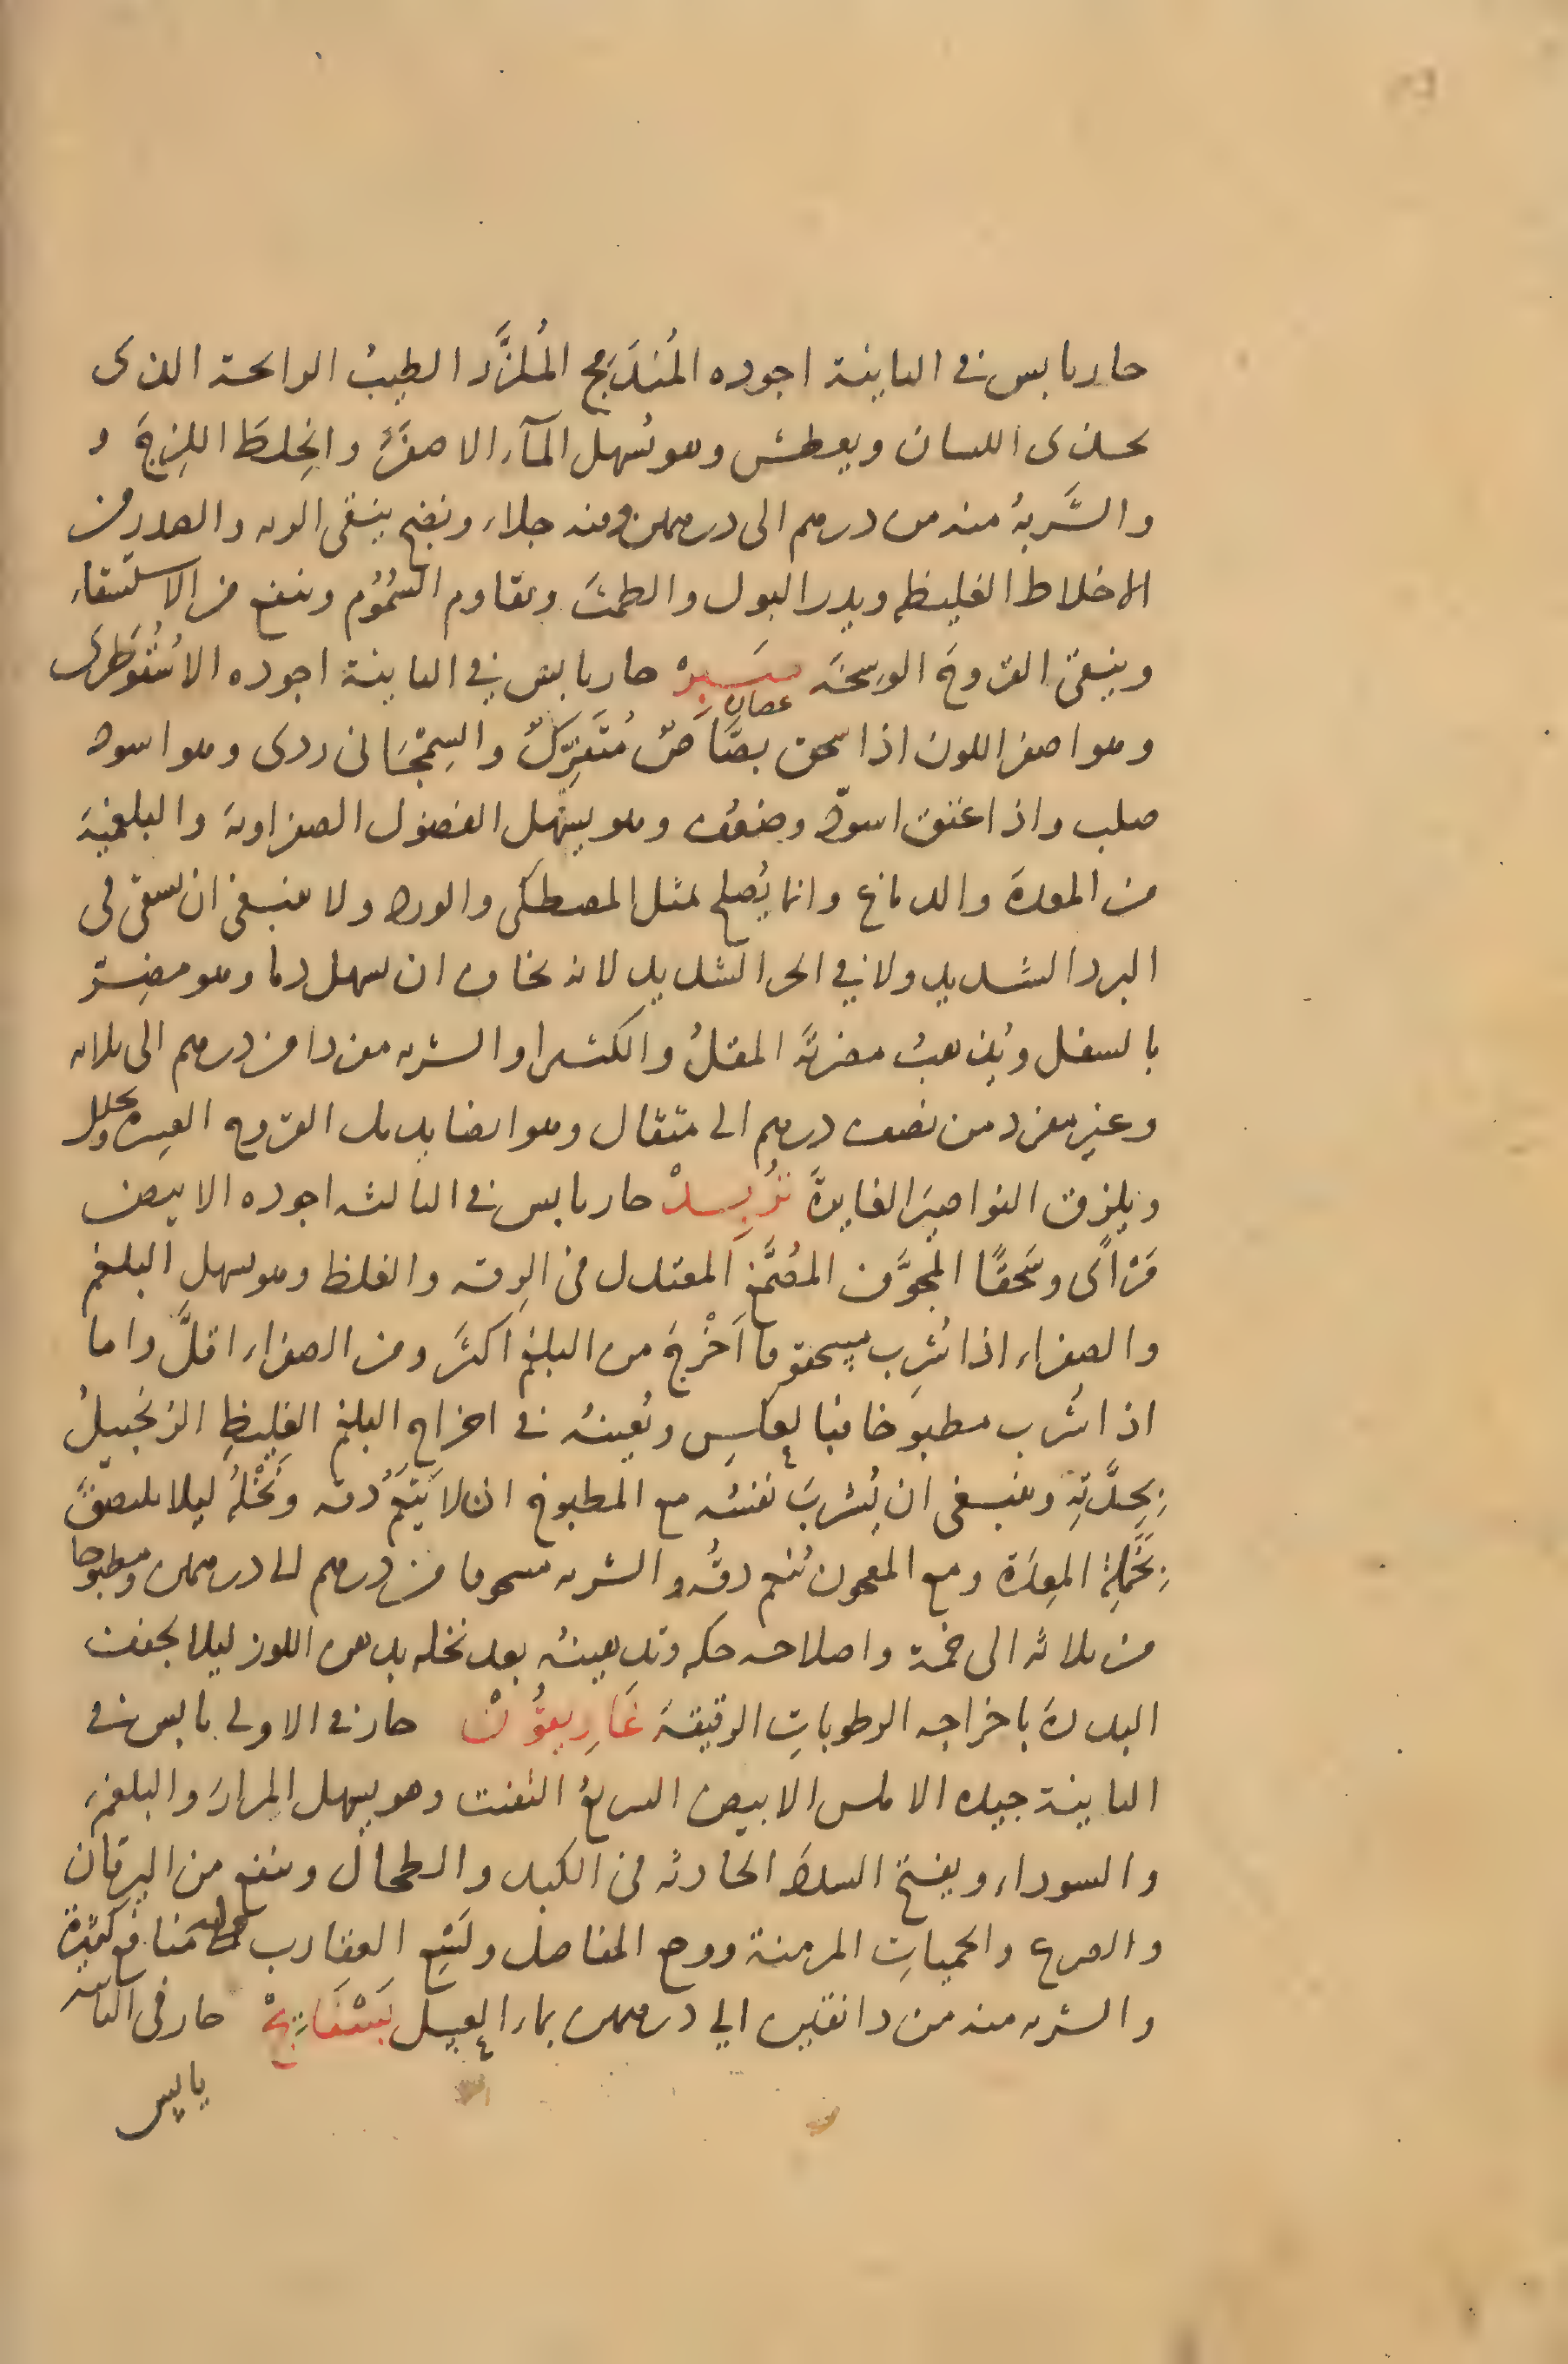 حار يابس في الثانية اجوده المُندَمج المُلزَّز الطيبُ الرائحة الذى
يحذى اللسان ويعطش وهو يُسهل المآء الاصفَرَ والخِلطَ اللزِجَ و
والشَّربةُ منه من درهم الى درهمين ومنه جلاء ونضج ينقى الريه والصدر من
الاخلاط الغليظه ويدر البول والطمثَ ويقاوم السُمُوُم وينفع من الاستسقاء
وينقى القروحَ الوسِخَه صَبِرْ حار يابس في الثانية اجوده الاسُقُوطُرَى
عصاره
وهو اصفر اللون اذا سحق بصَّاصٌ مُتَفَرِّكٌ والسِمِنْجَانى ردى وهو اسود
صلب واذا عَتق اسودّ وضعُف وهو يسهل الفضول الصفراويه والبلغميَه
من المعدة والدماغ وانما يُصلح بمثل المصطكى والورد ولا ينبغى ان يسقى فى
البرد الشديد ولا في الحر الشديد لانه يخاف ان يسهل دما وهو مضِرّ
بالسفل ويُذهبُ مضرتَهُ المقلُ والكثيرا والشربه مفردا من درهم الى ثلاثه
وغير مفرد من نصف درهم الى مثقال وهو ايضا يدمل القروح العسِره ويحلل
ويلزق النواصيرَ الغايرةَ تُربِدْ حار يابس في الثالثه اجوده الابيض
مَرْاًى وسَحقًا المجوَّف المُصَمَّغ المعتدل في الرِقه والغلظ وهو يسهل البلغم
والصفراء اذا شُرِب مسحوقا اَخْرجَ من البلغم اكثَرَ ومن الصفراء اقلَّ واما
اذا شُرب مطبوخا فبالعكسِ ويُعينهُ في اخراج البلغم الغليظِ الزنجبيلُ
بحِدَّتِهِ وينبغى ان يُشربَ نفسُه مع المطبوخ ان لا يُنَعَّمُ دقه ونَخْلُهُ ليلا يلتصقَ
بخَملِ المِعدَة ومع المعجون يُنعم دقُه والشربه مسحوقا من درهم الى درهمين ومطبوخا
من ثلاثه الى خمسة واصلاحه حكه وتدهينُه بعد نخله بدهن اللوز ليلا يجفف
البدن باخراجه الرطوباتِ الرقيقَه غَارِيقُوُنْ حار في الاولى يابس في
الثانية جيده الاملس الابيض السريعُ التفتت وهو يسهل المرارَ والبلغم
والسوداء ويفتح السددَ الحادثه في الكبد والطحال وينفع من اليرقان
والصرع والحمياتِ المزمنة ووجع المفاصل ولسْعِ العقارب وله منافع كثيرة
والشربه منه من دانقين الى درهمين بماء العسل بَسْفَايَجْ حار فى الثالثه
يابس